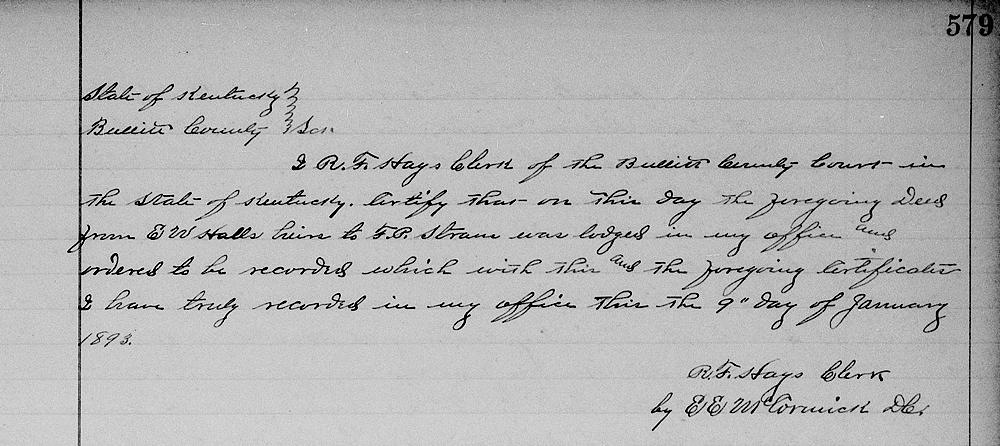 579
State of Kentucky
Bullitt County Sct.
I R.F. Hays Clerk of the Bullitt County Court in
the State of Kentucky. Certify that on this day the foregoing Deed
from E W Halls heirs to F.P. Straus was lodged in my office and
ordered to be recorded which with this and the foregoing Certificates
I have truly recorded in my office this the 9" day of January
1893.
R.F. Hays Clerk
by E E McCormick DC.